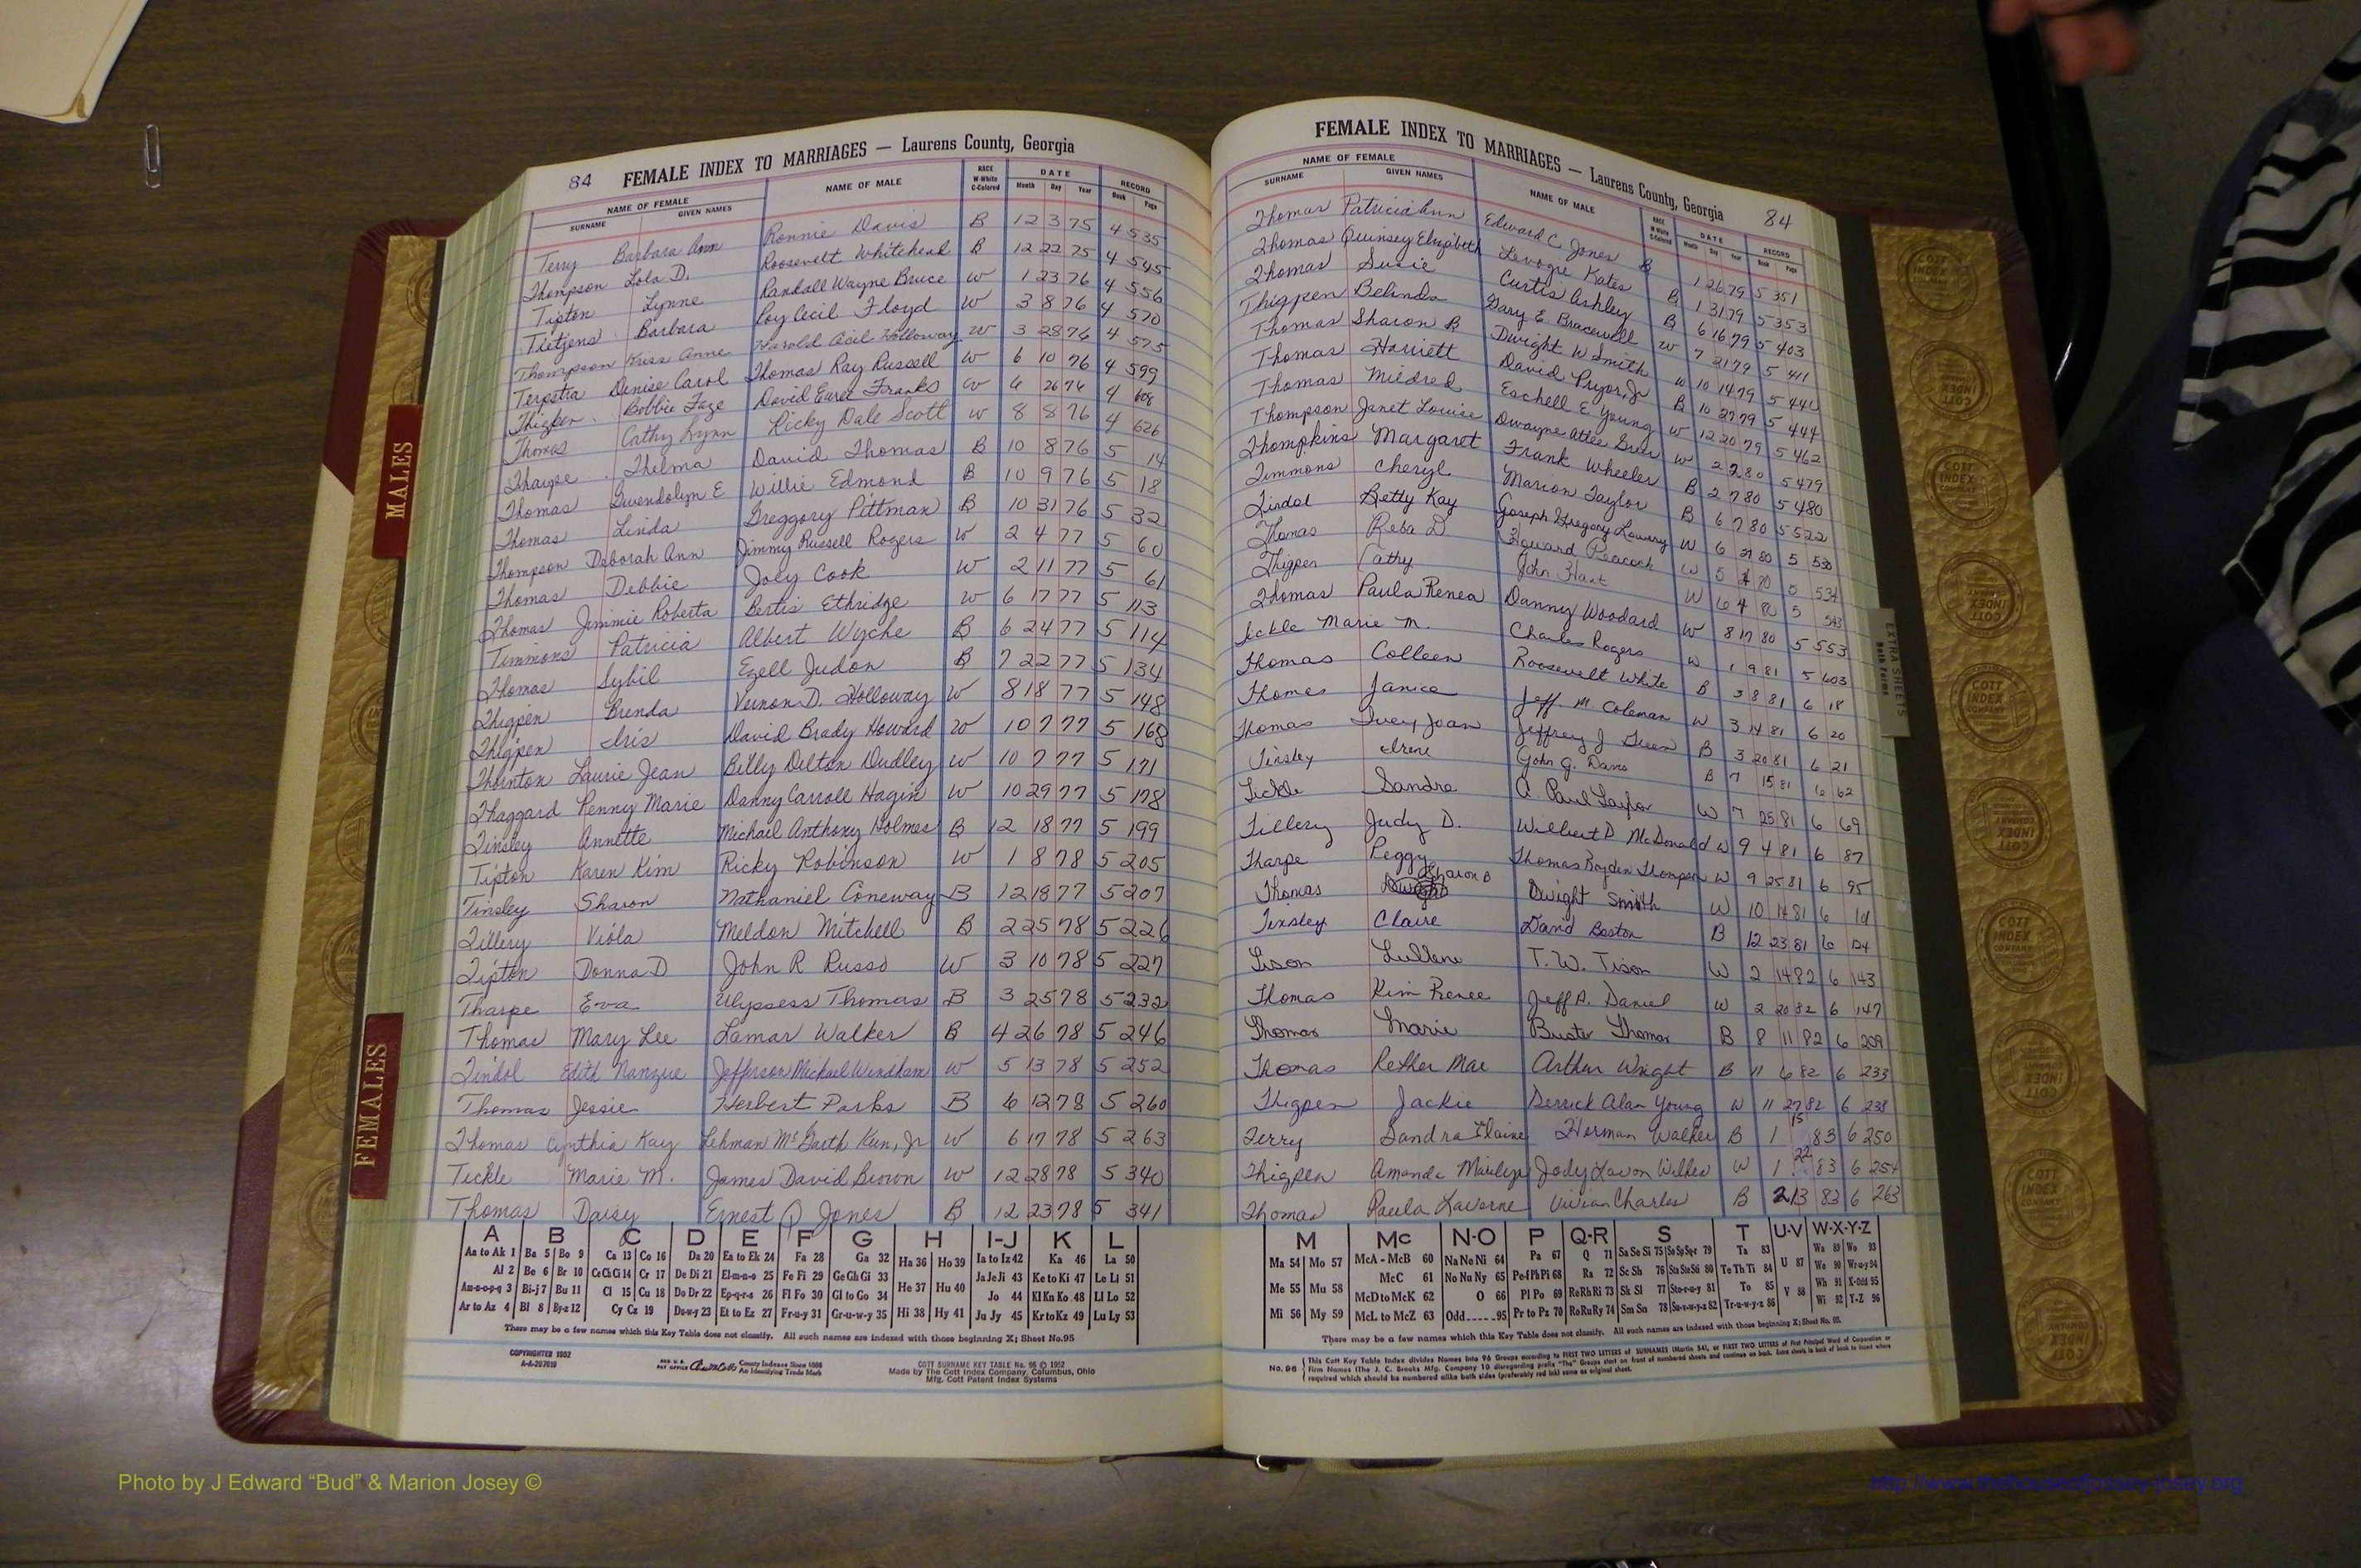 84 FEMALE INDEX TO MARRIAGES — Laurens County, Georgia
NAME OF FEMALE NAME OF MALE RACE W-White C-Colored DATE RECORD
SURNAME GIVEN NAMES Month Day Year Book Page
Terry Barbara Ann Ronnie Davis B 12 3 75 4 535
Thompson Lola D. Roosevelt Whitehead B 12 22 75 4 545
Tipton Lynne Randall Wayne Bruce W 1 23 76 4 556
Tietjens Barbara Roy Cecil Floyd W 3 8 76 4 570
Thompson Anne Harold Cecil Holloway W 3 28 76 4 575
Terpstra Denise Carol Thomas Ray Russell W 6 10 76 4 599
Thigpen Bobbie Faye David Earl Franks W 6 26 76 4 608
Thomas Cathy Lynn Ricky Dale Scott W 8 8 76 4 626
Tharpe Thelma David Thomas B 10 8 76 5 14
Thomas Gwendolyn E Willie Edmond B 10 9 76 5 18
Thomas Linda Greggory Pittman B 10 31 76 5 32
Thompson Deborah Ann Jimmy Russell Rogers W 2 4 77 5 60
Thomas Debbie Joey Cook W 2 11 77 5 61
Thomas Jimmie Roberta Bertis Ethridge W 6 17 77 5 113
Timmons Patricia Albert Wyche B 6 24 77 5 114
Thomas Sybil Ezell Judon B 7 22 77 5 134
Thigpen Brenda Vernon D. Holloway W 8 18 77 5 148
Thigpen Iris David Brady Howard W 10 7 77 5 168
Thornton Laurie Jean Billy Delton Dudley W 10 7 77 5 171
Thaggard Penny Marie Danny Carroll Hagin W 10 29 77 5 178
Tinsley Annette Michael Anthony Holmes B 12 18 77 5 199
Tipton Karen Kim Ricky Robinson W 1 8 78 5 205
Tinsley Sharon Nathaniel Coneway B 12 18 77 5 207
Tillery Viola Meldon Mitchell B 2 25 78 5 226
Tipton Donna D John R Russo W 3 10 78 5 227
Tharpe Eva Ulyssess Thomas B 3 25 78 5 232
Thomas Mary Lee Lamar Walker B 4 26 78 5 246
Tindol Edith Nanzue Jefferson Michael Windham W 5 13 78 5 252
Thomas Jessie Herbert Parks B 6 12 78 5 260
Thomas Cynthia Kay Lehman Jr W 6 17 78 5 263
Tickle Marie M. James David Brown W 12 28 78 5 340
Thomas Daisy Ernest Q Jones B 12 23 78 5 341
A B C D E F G H I-J K L
Aa to Ak 1 Ba 5 Bo 9 Ca 13 Co 16 Da 20 Ea to Ek 24 Fa 28 Ga 32 Ha 36 Ho 39 Ia to Iz 42 Ka 46 La 50
Al 2 Be 6 Br 10 Ce Ch Ci 14 Cr 17 De Di 21 El-m-n-o 25 Fe Fi 29 Ge Gh Gi 33 Ja Je Ji 43 Ke to Ki 47 Le Li 51
Am-n-o-p-q 3 Bi-j 7 Bu 11 Cl 15 Cu 18 Do Dr 22 Ep-q-r-s 26 Fl Fo 30 Gl to Go 34 He 37 Hu 40 Jo 44 Kl Kn Ko 48 Ll Lo 52
Ar to Az 4 Bl 8 By-z 12 Cy Cz 19 Du-w-y 23 Et to Ez 27 Fr-u-y 31 Gr-u-w-y 35 Hi 38 Hy 41 Ju Jy 45 Kr to Kz 49 Lu Ly 53
There may be a few names which this Key Table does not classify. All such names are indexed with those beginning X; Sheet No. 95
COPYRIGHTED 1952
County Indexes Since 1888
An Identifying Trade Mark
COTT SURNAME KEY TABLE No. 96 © 1952
Made by The Cott Index Company, Columbus, Ohio
Mfg. Cott Patent Index Systems
FEMALE INDEX TO MARRIAGES — Laurens County, Georgia 84
NAME OF FEMALE NAME OF MALE RACE W-White C-Colored DATE RECORD
SURNAME GIVEN NAMES Month Day Year Book Page
Thomas Patricia Ann Edward C. Jones B 1 26 79 5 351
Thomas Quinsey Elizabeth Levogie Kates B 1 31 79 5 353
Thomas Susie Curtis Ashley B 6 16 79 5 403
Thigpen Belinda Gary E Bracewell W 7 21 79 5 411
Thomas Sharon B Dwight W Smith W 10 14 79 5 440
Thomas Harriett David Pryor, Jr B 10 27 79 5 444
Thomas Mildred Eschell E Young W 12 20 79 5 462
Thompson Janet Louise Dwayne W 2 2 80 5 479
Thompkins Margaret Frank Wheeler B 2 7 80 5 480
Timmons Cheryl Marion Taylor B 6 7 80 5 522
Tindol Betty Kay Joseph Gregory Lowery W 6 21 80 5 530
Thomas Reba D Howard Peacock W 5 80 5 534
Thigpen Cathy John Hart W 6 4 80 5 543
Thomas Paula Renea Danny Woodard W 8 17 80 5 553
Tickle Marie M. Charles Rogers W 1 9 81 5 603
Thomas Colleen Roosevelt White B 3 8 81 6 18
Thomas Janice Jeff. M. Coleman W 3 14 81 6 20
Thomas Ivey Joan Jeffrey J Green B 3 20 81 6 21
Tinsley Irene John G. Davis B 7 15 81 6 62
Tickle Sandra A. Paul Taylor W 7 25 81 6 69
Tillery Judy D. Wilbert D McDonald W 9 4 81 6 87
Tharpe Peggy Thomas Royden Thompson W 9 25 81 6 95
Thomas Sharon B Dwight Smith W 10 14 81 6 101
Tinsley Claire David Boston B 12 23 81 6 124
Tison Lullene T. W. Tison W 2 14 82 6 143
Thomas Kim Renee Jeff A. Daniel W 2 20 82 6 147
Thomas Marie Buster Thomas B 8 11 82 6 209
Thomas Rether Mae Arthur Wright B 11 6 82 6 233
Thigpen Jackie Derrick Alan Young W 11 27 82 6 238
Terry Sandra Elaine Herman Walker B 1 15 83 6 250
Thigpen Amanda Marilyn Jody Lavon Wilkes W 1 22 83 6 254
Thomas Paula Laverne Vivian Charles B 2 13 83 6 263
M Mc N-O P Q-R S T U-V W-X-Y-Z
Ma 54 Mo 57 McA - McB 60 Na Ne Ni 64 Pa 67 Q 71 Sa Se Si 75 So Sp Sq-r 79 Ta 83 Wa 89 Wo 93
McC 61 No Nu Ny 65 Pe-f Ph Pi 68 Ra 72 Sc Sh 76 Sta Ste Sti 80 Te Th Ti 84 U 87 We 90 Wr-u-y 94
Me 55 Mu 58 McD to McK 62 O 66 Pl Po 69 Re Rh Ri 73 Sk Sl 77 Sto-r-u-y 81 To 85 V 88 Wh 91 X-Odd 95
Mi 56 My 59 McL to McZ 63 Odd.....95 Pr to Pz 70 Ro Ru Ry 74 Sm Sn 78 Su-v-w-y-z 82 Tr-u-w-y-z 86 Wi 92 Y-Z 96
There may be a few names which this Key Table does not classify. All such names are indexed with those beginning X; Sheet No. 95.
No. 96 This Cott Key Table Index divides Names into 96 Groups according to FIRST TWO LETTERS of SURNAMES (Martin 54), or FIRST TWO LETTERS of First Principal Word of Corporation or
Firm Names (The J. C. Brooks Mfg. Company 10 disregarding prefix "The" Groups start on front of numbered sheets and continue on back. Extra sheets in back of book to insert where
required which should be numbered alike both sides (preferably red ink) same as original sheet.
MALES
FEMALES
EXTRA SHEETS
Both Forms
COTT INDEX COMPANY
Photo by J Edward “Bud” & Marion Josey ©
http://www.thehouseofjossey-josey.org